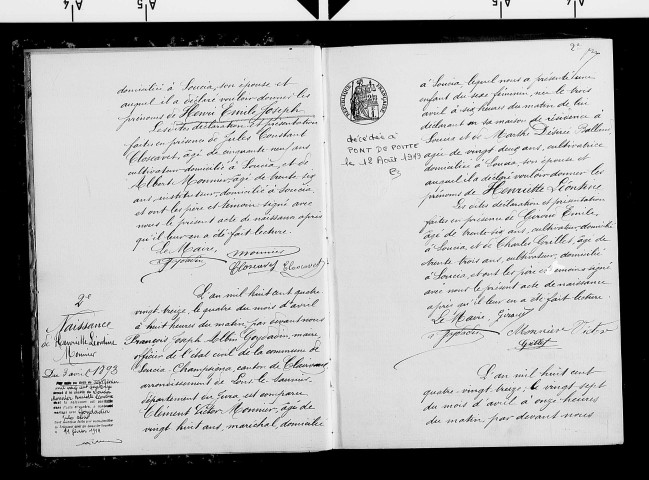 domiciliée à Soucia, son épouse et
auquel il a déclaré vouloir donner les
prénoms de Henri Emile Joseph
Les dites déclaration et présentation
faites en présence de Jules Constant
Closcavet, âgé de cinquante neuf ans
cultivateur domicilié à Soucia, et de
Albert Monnier, âgé de trente six
ans, instituteur, domicilié à Soucia,
et ont les père et témoins signé avec
nous le présent acte de naissance après
qu'il leur en a été fait lecture.
Le Maire, Monnier
2e
Naissance
de Henriette Léontine
Monnier
Du 3 avril 1893
11 février 1919
L'an mil huit cent quatre
vingt treize, le quatre du mois d'avril
à huit heures du matin, par devant nous
François Joseph Albin
officier de l'état civil de la commune de
Soucia Champagna, canton de Clairvaux
arrondissement de Lons le Saunier
département du Jura, est comparu
Clément Victor Monnier, âgé de
vingt huit ans, maréchal, domicilié
2e
REPUBLIQUE FRANÇAISE
décédée à
PONT DE POITTE
le 18 Août 1979
à Soucia, lequel nous a présenté une
enfant du sexe féminin, née le trois
avril à six heures du matin, de lui
déclarant en sa maison de résidence à
Soucia et de Marthe Désirée
âgée de vingt deux ans, cultivatrice
domiciliée à Soucia son épouse et
auquel il a déclaré vouloir donner les
prénoms de Henriette Léontine
Les dites déclaration et présentation
faites en présence de Girod Emile,
âgé de trente six ans, cultivateur, domicilié
à Soucia, et de Charles Grillet, âgé de
trente trois ans, cultivateur, domicilié
à Soucia, et ont les père et témoins signé
avec nous le présent acte de naissance
après qu'il leur en a été fait lecture.
Le Maire, Girod
Monnier Victor
Grillet
L'an mil huit cent
quatre-vingt treize, le vingt sept
du mois d'avril à onze heures
du matin par devant nous